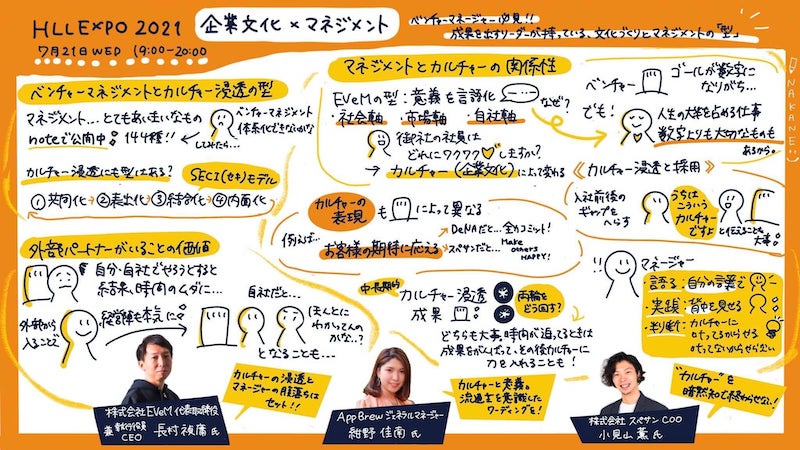 HLL EXPO 2021
7月21日 WED 19:00-20:00
企業文化×マネジメント
ベンチャーマネージャー必見!!
成果を出すリーダーが持っている、文化づくりとマネジメントの「型」
NAKANE
ベンチャーマネジメントとカルチャー浸透の型
マネジメント…とてもあいまいなもの
noteで公開中! 144種!!
してみたら…
ベンチャーマネジメント
体系化できないかな
カルチャー浸透にも型はある?
SECI(セキ)モデル
①共同化→②表出化→③結合化→④内面化
外部パートナーがいることの価値
自分・自社でやろうとすると
結果、時間のムダに…
外部から
入ることで
経営陣も本気に!
自社だと…
ほんとに
わかってんの
かな..?
となることも…
マネジメントとカルチャーの関係性
EVeMの型:意義を言語化
・社会軸 ・市場軸 自社軸
なぜ?
御社の社員は
どれにワクワクしますか?
→カルチャー(企業文化)によって変わる
ベンチャー
ゴールが数字に
なりがち…
でも!
人生の大半を占める仕事
数字よりも大切なものも
あるから。
カルチャーの
表現
も
によって異なる
例えば…
お客様の期待に応える
DeNAだと…全力コミット!
スペサンだと…Make
others
HAPPY!
《カルチャー浸透と採用》
入社前後の
ギャップを
へらす
うちは
こういう
カルチャー
ですよ
と伝えることも
大事!
中・長期から
カルチャー浸透
成果
両輪を
どう回す?
どちらも大事。時間が迫ってるときは
成果をがんばって、その後カルチャーに
力を入れることも!
マネージャー
・語る:自分の言葉で
・実践:背中を見せる
・判断:カルチャーに
叶ってるからやる
叶ってないからやらない
株式会社EVeM 代表取締役
兼 執行役員
CEO 長村禎庸 氏
カルチャーの浸透と
マネージャーの腹落ちは
セット!!
AppBrew ジェネラルマネージャー
紺野 佳南 氏
カルチャーと意義。
流通を意識した
ワーディングを!
株式会社 スペサン COO
小見山 薫 氏
"カルチャー"を
暗黙知で終わらせない!